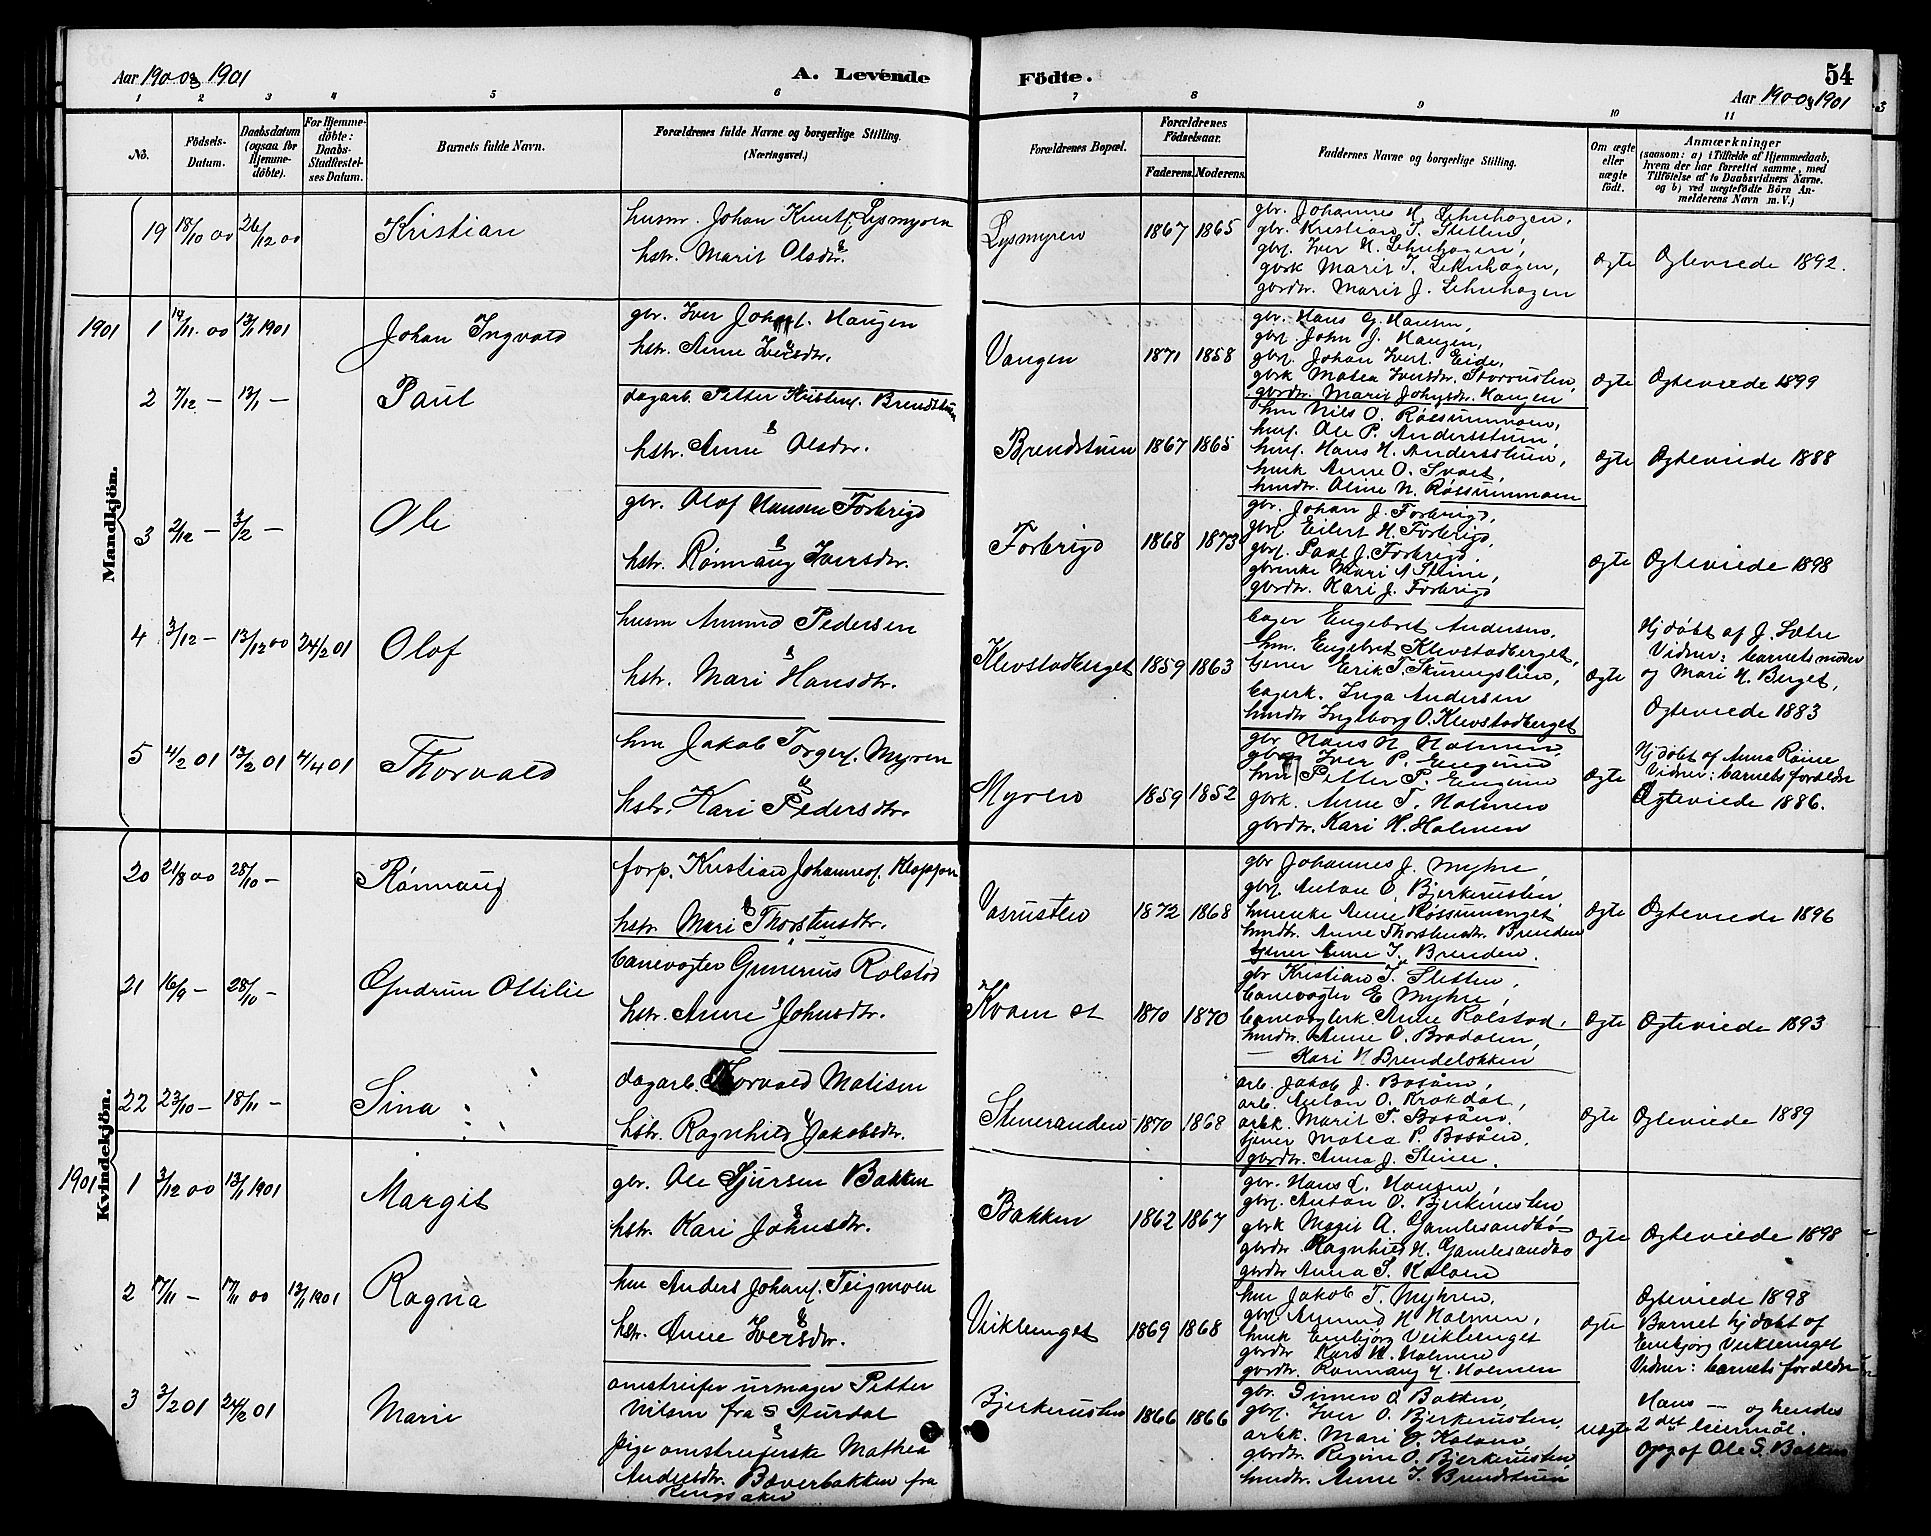 Aar 1900 og 1901
A. Levende
Födte.
54
Aar 1900 og 1901
1 2 3 4 5 6 7 8 9 10 11
No.
Födsels-Datum.
Daabsdatum (ogsaa for Hjemmedöbte).
For Hjemmedöbte: Daabs-Stadfestelses Datum.
Barnets fulde Navn.
Forældrenes fulde Navne og borgerlige Stilling. (Næringsvei.)
Forældrenes Bopæl.
Forældrenes Födselsaar.
Faderens. Moderens.
Faddernes Navne og borgerlige Stilling.
Om ægte eller uægte födt.
Anmærkninger
(saasom: a) i Tilfælde af Hjemmedaab, hvem der har forrettet samme, med Tilföielse af to Daabsvidners Navne. og b) ved uægtefödte Börn Anmelderens Navn m. V.)
Mandkjön.
19 18/10 00 26/12 00 Kristian
husm. Johan Knuts. Lysmyren
&
hstr. Marit Olsdtr.
Lysmyren 1867 1865
gbr. Johannes H. Lehnhagen,
gbr. Kristian T. Sletten,
gbs. Iver H. Lehnhagen,
gbrk Marit T. Lehnhagen,
gbrdtr. Marit J. Lehnhagen
Ægte Ægteviede 1892.
1901 1 14/11 00 13/1 1901 Johan Ingvald
gbr. Iver Johns. Haugen
&
hstr. Anne Iversdtr.
Vangen 1871 1858
gbr. Hans G. Hansen,
gbs. John J. Haugen,
gbs. Johan Ivers. Eide,
gbrk Matea Iversdtr. Storrusten,
gbrdtr. Marit Johnsdtr. Haugen
Ægte Ægteviede 1899
2 7/12 — 13/1 — Paul
dagarb. Petter Kristens. Brendstuen
&
hstr. Anne Olsdtr.
Brendstuen 1867 1865
hm Nils O. Røssummoen,
hms. Ole P. Andersstuen,
hms. Hans H. Andersstuen,
hmk Anne O. Svaet,
hmdtr. Oline N. Røssummoen
Ægte Ægteviede 1888
3 2/12 — 3/2 — Ole
gbr. Olaf Hansen Forbrigd
&
hstr. Rønnaug Iversdtr.
Forbrigd 1868 1873
gbr. Johan J. Forbrigd,
gbs. Eilert H. Forbrigd,
gbs. Paul J. Forbrigd
gbrenke Mari A Steine,
gbrdtr. Kari J. Forbrigd
Ægte Ægteviede 1898
4 3/12 — 13/12 00 24/2 01 Olaf
husm Amund Pedersen
&
hstr. Mari Hansdtr.
Klevstadberget 1859 1863
bager Engebret Andersen,
hm. Engebret Klevstadberget,
tjener Erik T. Skurengslien,
bagerk. Inga Andersen
hmdtr Ingeborg O. Klevstadberget
Ægte
Hjdøbt af J. Sætre
Vidner: barnets moder
og Mari H. Berget,
Ægteviede 1883
5 4/2 01 13/2 01 4/4 01 Thorvald
hm Jakob Torgers. Myren
&
hstr. Kari Pedersdtr.
Myren 1859 1852
gbr Hans H Holmen
gbs Iver P. Engum
hm Petter P. Engum
gbrk. Anne T. Holmen
gbrdtr. Kari H. Holmen
Ægte
Hjdøbt af Anna Røine
Vidner: barnets forældre
Ægteviede 1886.
Kvindekjön.
20 21/8 00 28/10 — Rønnaug
forp. Kristian Johannes. Kloppen
&
hstr. Mari Thorstensdtr.
Vasrusten 1872 1868
gbr Johannes J. Myhre,
gbs. Anton O. Bjerkerusten
hmenke Anne Røssumenget
hmdtr. Anne Thorstensdtr. Brenden
tjener Anne I. Brenden.
Ægte Ægteviede 1896
21 16/9 — 28/10 — Gudrun Ottilie
banevogter Gunerius Rolstad
&
hstr. Anne Johnsdtr.
Kvam st 1870 1870
gbr Kristian T. Sletten,
banevogter E Myhre,
banevogterk Anne Rolstad,
hmdtr. Anne O. Bradalen,
— Kari H Brendeløkken
Ægte Ægteviede 1893
22 23/10 — 18/11 — Sina
dagarb. Thorvald Matisen
&
hstr. Ragnhild Jakobsdtr.
Steneranden 1870 1868
arb. Jakob J. Bosåen,
arb. Anton O. Krokdal,
arbk. Marit T. Bosåen.
tjener Matea P. Bosåen,
gbrdtr. Anna J. Steine.
Ægte Ægteviede 1889
1901 1 3/12 00 13/1 1901 Margit
gbr. Ole Sjursen Bakken
&
hstr. Kari Johnsdtr.
Bakken 1862 1867
gbr. Hans L. Hansen,
gbs. Anton O. Bjerkerusten
gbrk Marit A. Gamlesandbo
gbrdtr. Ragnhild H. Gamlesandbo
gbrdtr Anna S. Kolaen
Ægte Ægteviede 1898
2 17/11 — 17/11 00 13/1 1901 Ragna
hm Anders Johans. Teigmoen
&
hstr. Anne Iversdtr.
Veiklenget 1869 1868
hm Jakob T. Myhren,
gbs Amund H Holmen,
hmk Embjørg Veiklenget
gbrdtr Kari H. Holmen
gbrdtr. Rønnaug H. Holmen
Ægte
Ægteviede 1898
Barnet hjdøbt af
Embjørg Veiklenget
Vidner: barnets forældre
3 3/2 01 24/2 01 Marie
omstreifer urmager Petter
Nilsen fra S Aurdal
&
pige omstreiferske Mathea
Andersdtr. Bæverbakken fra
Ringsaker
Bjerkerusten 1866 1866
gbr. Simen O Bakken,
gbs. Iver O. Bjerkerusten,
arbk. Mari O. Kolaen
gbrdtr. Regine O. Bjerkerusten
hmdtr. Anne I. Brendstuen
uægte
Hans — og hendes
2det leiermål.
Opg af Ole S. Bakken